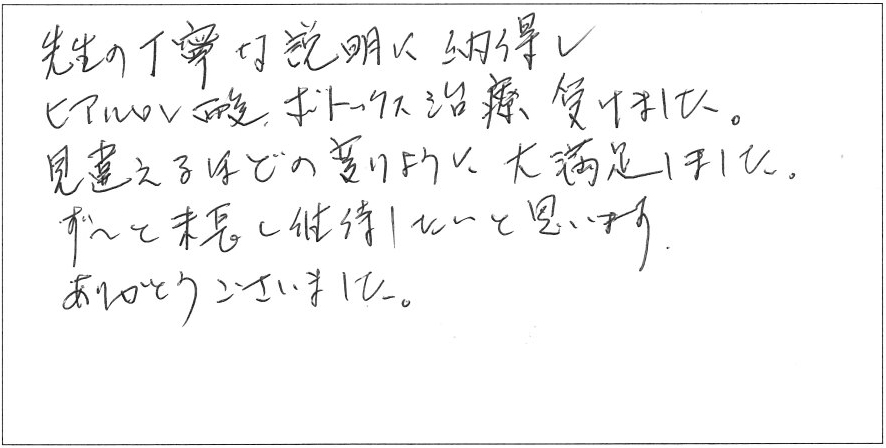 先生の丁寧な説明に納得し
ヒアルロン酸、ボトックス治療、受けました。
見違えるほどの変りように、大満足しました。
ず〜と末長く維持したいと思います.
ありがとうございました。